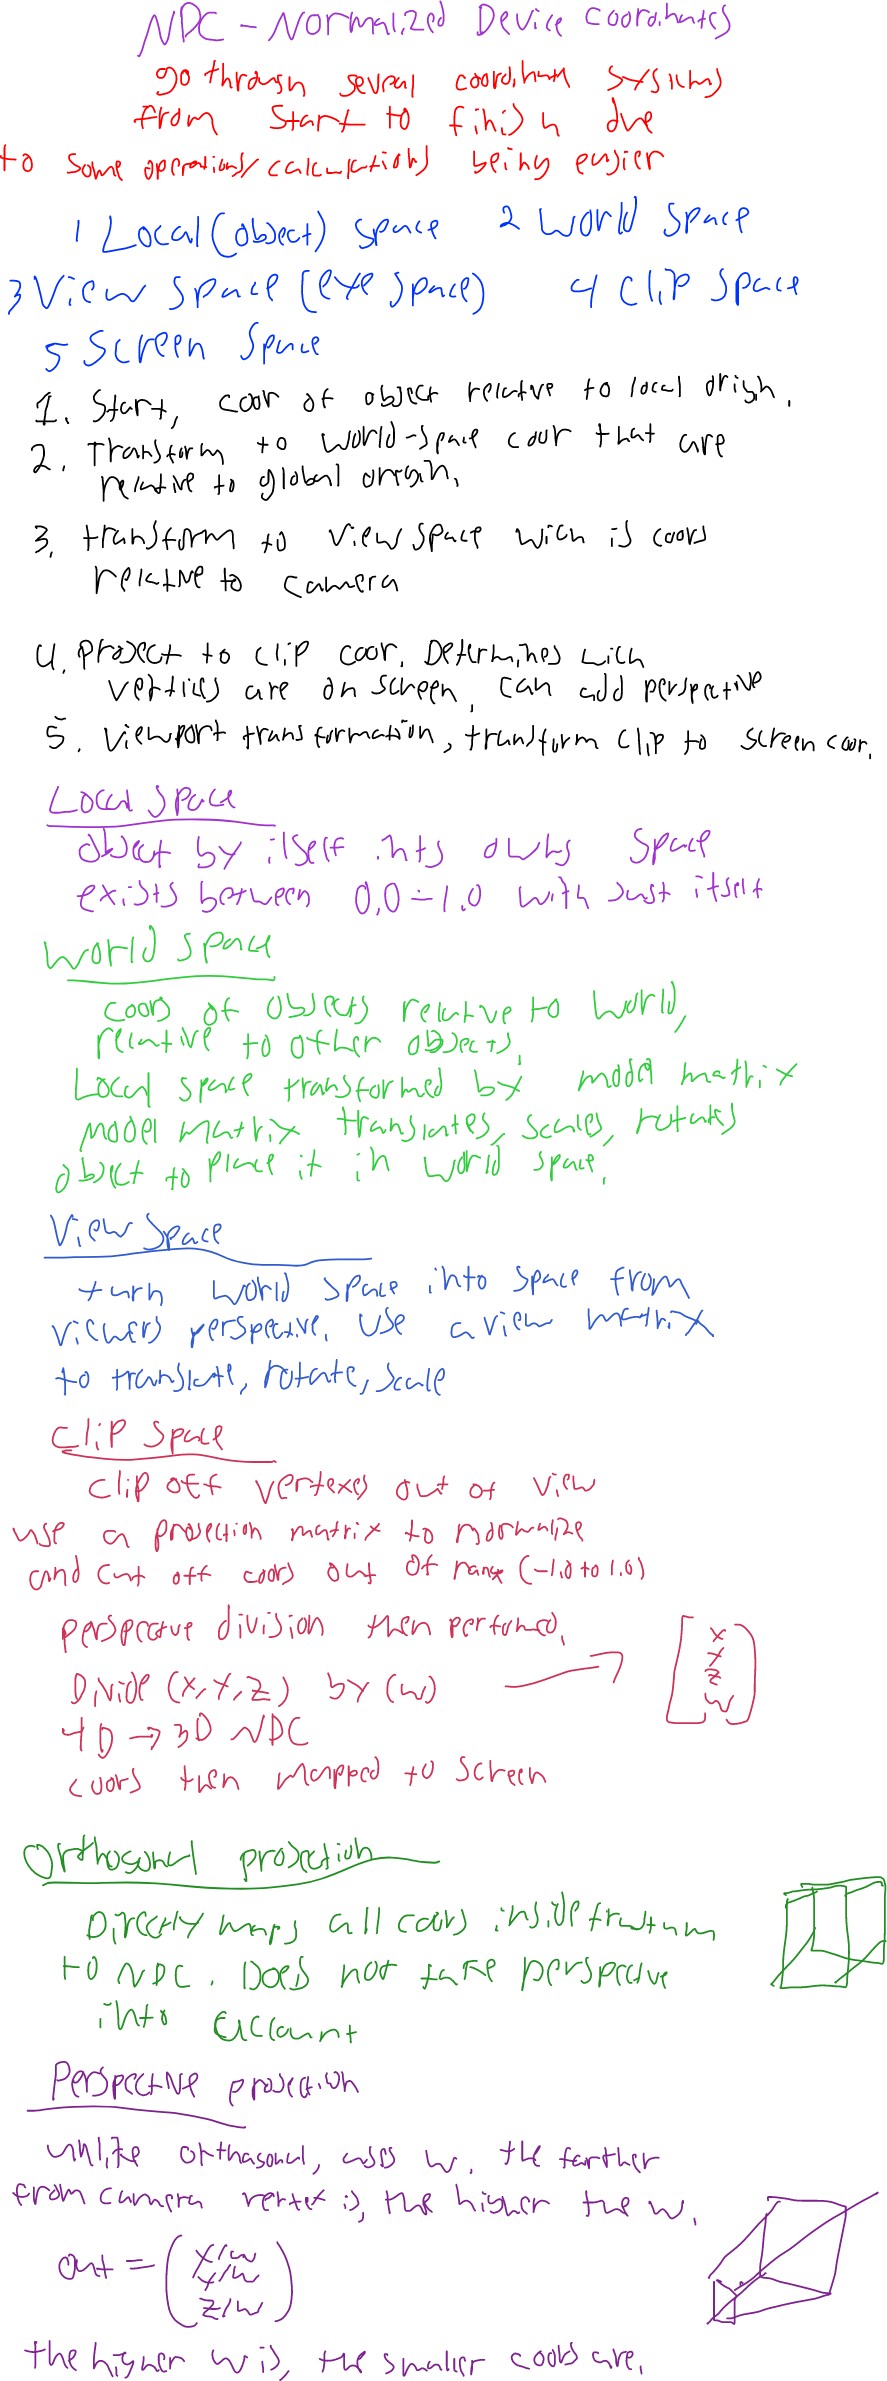 NDC - Normalized Device Coordinates
go through several coordinate systems
from start to finish due
to some operations/calculations being easier
1 Local(object) space 2 World space
3 View space (eye space) 4 Clip space
5 Screen space
1. Start, coor of object relative to local origin.
2. Transform to world-space coor that are
relative to global origin.
3. transform to view space wich is coors
relative to camera
4. Project to clip coor. Determines wich
verticies are on screen, can add perspective
5. Viewport transformation, transform clip to screen coor.
Local space
object by itself in its owns space
exists between 0.0 - 1.0 with just itself
World space
coors of objects relative to world,
relative to other objects.
Local space transformed by model matrix
model matrix translates, scales, rotates
object to place it in world space.
View space
turn world space into space from
viewers perspective. Use a view matrix
to translate, rotate, scale
Clip space
clip off vertexes out of view
use a projection matrix to normalize
and cut off coors out of range (-1.0 to 1.0)
perspective division then performed.
Divide (x,y,z) by (w)
4D → 3D NDC
coors then mapped to screen
x
y
z
w
Orthogonal projection
Directly maps all coors inside frustum
to NDC. Does not take perspective
into account
Perspective projection
unlike orthagonal, uses w. the farther
from camera vertex is, the higher the w.
out = (x/w
y/w
z/w)
the higher w is, the smaller coors are.